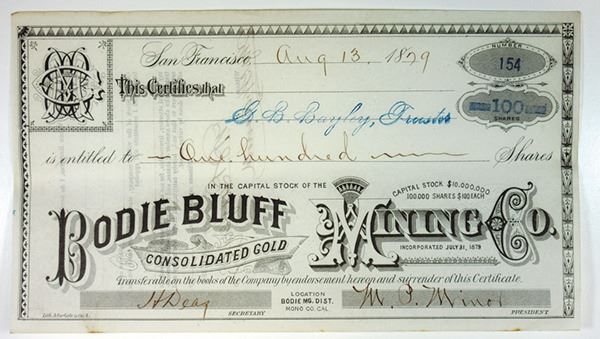 San Francisco, Aug 13, 1879
NUMBER
154
This Certifies that
G. B. Bayley, Trustee
100
SHARES
is entitled to One hundred Shares
IN THE CAPITAL STOCK OF THE
CAPITAL STOCK $10,000,000
100,000 SHARES $100 EACH
BODIE BLUFF
CONSOLIDATED GOLD
MINING CO.
INCORPORATED JULY 31, 1879
Transferable on the books of the Company by endorsement hereon and surrender of this Certificate.
SECRETARY
LOCATION
BODIE MG. DIST.
MONO CO. CAL.
M. P. Minor
PRESIDENT